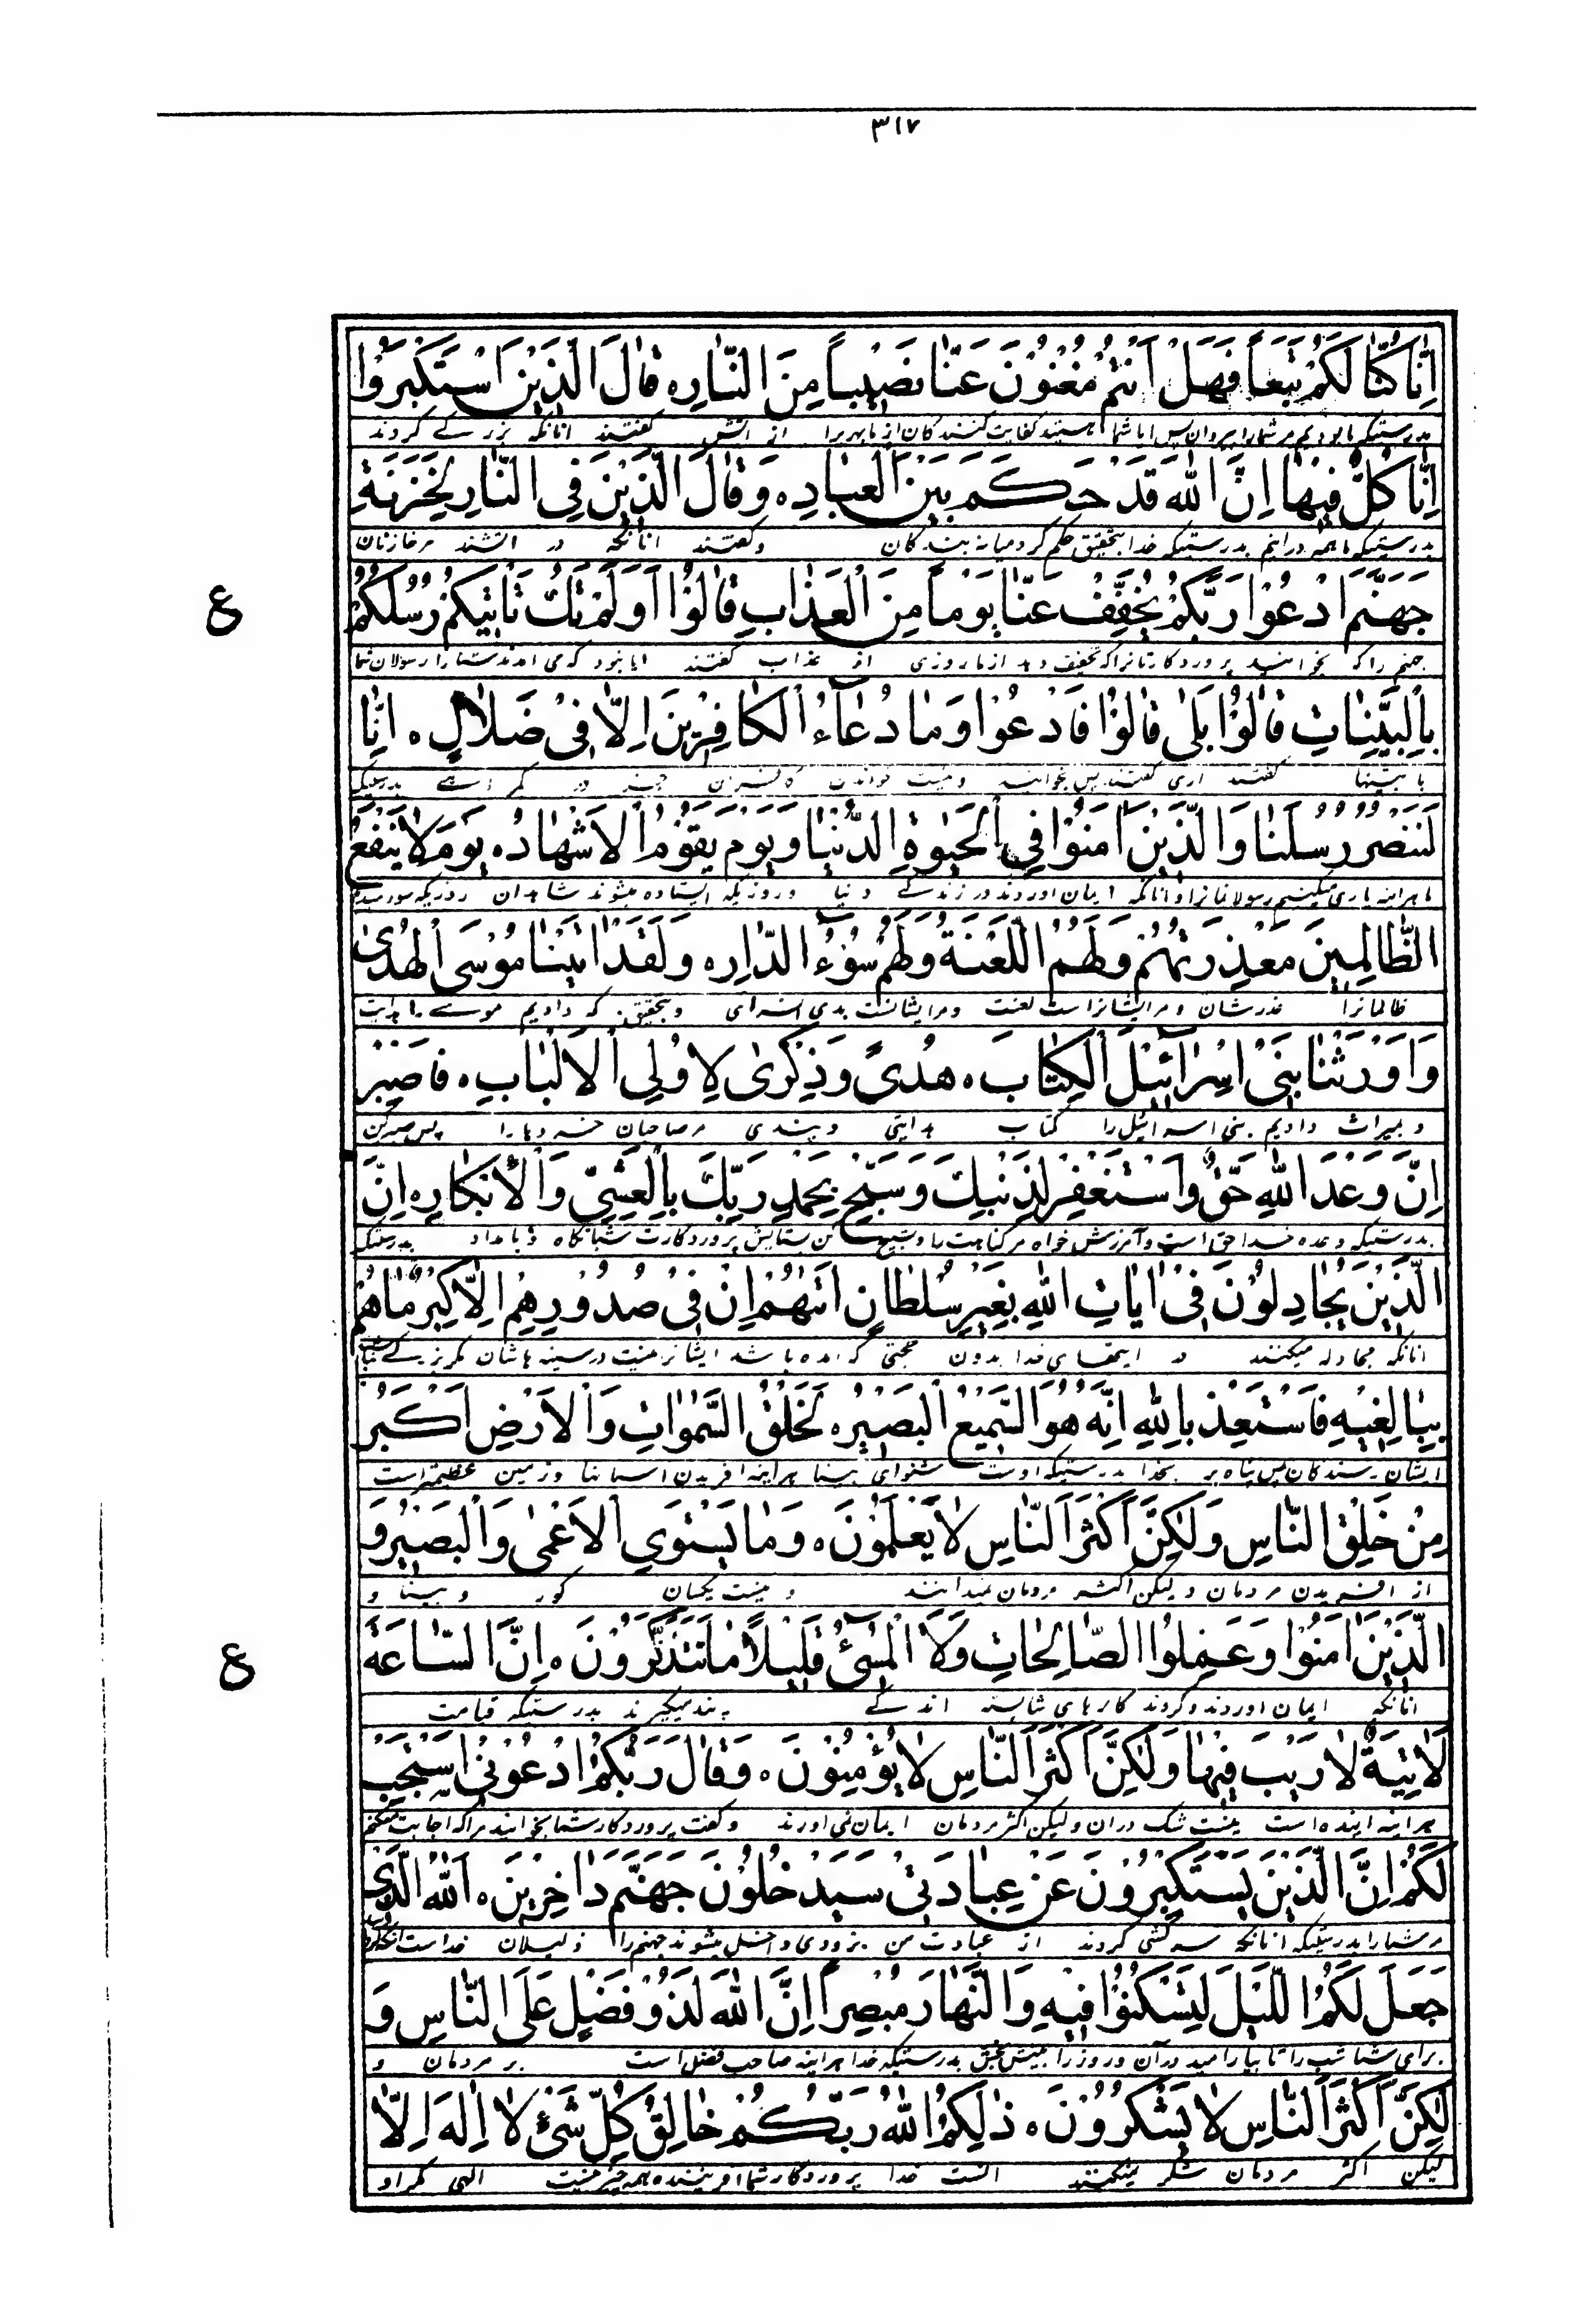 ٣١٧
اِنّٰا كُنّٰا لَكُمْ تَبَعاً فَهَلْ اَنْتُمْ مُغْنُوْنَ عَنّٰا نَصٖيباً مِنَ النّٰارِ ه قٰالَ الَّذٖينَ اسْتَكْبَرُوٓا
بدرستیکه ما بودیم مر شما را پیروان پس ایا شما هستید کفایت کنندکان از ما بهرۀ از اتش کفتند انانکه بزرکی کردند
اِنّٰا كُلٌّ فٖيهٰا اِنَّ اللّٰهَ قَدْ حَكَمَ بَيْنَ الْعِبٰادِ ه وَقٰالَ الَّذٖينَ فِي النّٰارِ لِخَزَنَةِ
بدرستیکه ما همه درانیم بدرستیکه خدا بتحقیق حکم کرد میانه بندکان وکفتند انانکه در اتشند مر خازنان
جَهَنَّمَ ادْعُوْا رَبَّكُمْ يُخَفِّفْ عَنّٰا يَوْماً مِنَ الْعَذٰابِ قٰالُوْٓا اَوَلَمْ تَكُ تَأْتٖيكُمْ رُسُلُكُمْ
ع
جهنم را که بخوانید پروردکارتانرا که تخفیف دهد از ما روزی از عذاب کفتند ایا نبود که می امدند شما را رسولان شما
بِالْبَيِّنٰاتِ قٰالُوْا بَلٰى قٰالُوْا فَادْعُوْا وَمٰا دُعٰٓاءُ الْكٰافِرٖينَ اِلّٰا فٖيْ ضَلٰالٍ ه اِنّٰا
با بینتها کفتند اری کفتند پس بخوانید ونیست خواندن کافران مکر در کمراهی بدرستیکه
لَنَنْصُرُ رُسُلَنٰا وَالَّذٖينَ اٰمَنُوْا فِي الْحَيٰوةِ الدُّنْيٰا وَيَوْمَ يَقُوْمُ الْاَشْهٰادُ ه يَوْمَ لٰا يَنْفَعُ
ما هراینه یاری میکنیم رسولانمانرا و انانکه ایمان اوردند در زندکی دنیا و روزیکه ایستاده میشوند شاهدان روزیکه سود میدهد
الظّٰالِمٖينَ مَعْذِرَتُهُمْ وَلَهُمُ اللَّعْنَةُ وَلَهُمْ سُوْٓءُ الدّٰارِ ه وَلَقَدْ اٰتَيْنٰا مُوْسَى الْهُدٰى
ظالمانرا عذرشان ومرایشانراست لعنت ومرایشانست بدی سرای وبتحقیق که دادیم موسی را هدایت
وَاَوْرَثْنٰا بَنٖيْ اِسْرٰٓائٖيلَ الْكِتٰابَ ه هُدًى وَذِكْرٰى لِاُولِي الْاَلْبٰابِ ه فَاصْبِرْ
ومیراث دادیم بنی اسرائیل را کتاب هدایتی وپندی مر صاحبان خردها را پس صبرکن
اِنَّ وَعْدَ اللّٰهِ حَقٌّ وَاسْتَغْفِرْ لِذَنْبِكَ وَسَبِّحْ بِحَمْدِ رَبِّكَ بِالْعَشِيِّ وَالْاِبْكٰارِ ه اِنَّ
بدرستیکه وعده خدا حق است وآمرزش خواه مر کناهت را وتسبیح کن بستایش پروردکارت شبانکاه و بامداد بدرستیکه
الَّذٖينَ يُجٰادِلُوْنَ فٖيْ اٰيٰاتِ اللّٰهِ بِغَيْرِ سُلْطٰانٍ اَتٰهُمْ اِنْ فٖيْ صُدُوْرِهِمْ اِلّٰا كِبْرٌ مٰا هُمْ
انانکه مجادله میکنند در ایتهای خدا بدون حجتی که امده باشد ایشانرا نیست در سینه هاشان مکر بزرکی نیستند
بِبٰالِغٖيهِ فَاسْتَعِذْ بِاللّٰهِ اِنَّهُ هُوَ السَّمٖيعُ الْبَصٖيرُ ه لَخَلْقُ السَّمٰوٰاتِ وَالْاَرْضِ اَكْبَرُ
ایشان رسندکان پس پناه بر بخدا بدرستیکه اوست شنوای بینا هراینه افریدن اسمانها وزمین عظیمتر است
مِنْ خَلْقِ النّٰاسِ وَلٰكِنَّ اَكْثَرَ النّٰاسِ لٰا يَعْلَمُوْنَ ه وَمٰا يَسْتَوِي الْاَعْمٰى وَالْبَصٖيرُ وَ
از افریدن مردمان ولیکن اکثر مردمان نمیدانند و نیست یکسان کور و بینا و
الَّذٖينَ اٰمَنُوْا وَعَمِلُوا الصّٰالِحٰاتِ وَلَا الْمُسٖٓيءُ قَلٖيلاً مٰا تَتَذَكَّرُوْنَ ه اِنَّ السّٰاعَةَ
ع
انانکه ایمان اوردند وکردند کارهای شایسته اندکی پند میکیرند بدرستیکه قیامت
لَاٰتِيَةٌ لٰا رَيْبَ فٖيهٰا وَلٰكِنَّ اَكْثَرَ النّٰاسِ لٰا يُؤْمِنُوْنَ ه وَقٰالَ رَبُّكُمُ ادْعُوْنٖيْ اَسْتَجِبْ
هراینه اینده است نیست شک دران ولیکن اکثر مردمان ایمان نمی اورند وکفت پروردکار شما بخوانید مرا که اجابت میکنم
لَكُمْ اِنَّ الَّذٖينَ يَسْتَكْبِرُوْنَ عَنْ عِبٰادَتٖيْ سَيَدْخُلُوْنَ جَهَنَّمَ دٰاخِرٖينَ ه اَللّٰهُ الَّذٖي
مر شما را بدرستیکه انانکه سرکشی کردند از عبادت من بزودی داخل میشوند جهنم را ذلیلان خداست
جَعَلَ لَكُمُ اللَّيْلَ لِتَسْكُنُوْا فٖيهِ وَالنَّهٰارَ مُبْصِراً اِنَّ اللّٰهَ لَذُوْ فَضْلٍ عَلَى النّٰاسِ وَ
برای شما شب را تا بیارامید درآن و روز را بدرستیکه خدا هراینه صاحب فضل است بر مردمان و
لٰكِنَّ اَكْثَرَ النّٰاسِ لٰا يَشْكُرُوْنَ ه ذٰلِكُمُ اللّٰهُ رَبُّكُمْ خٰالِقُ كُلِّ شَيْءٍ لٰا اِلٰهَ اِلّٰا
لیکن اکثر مردمان شکر نمیکنند انست خدا پروردکار شما افریننده همه چیز نیست الهی مکر او